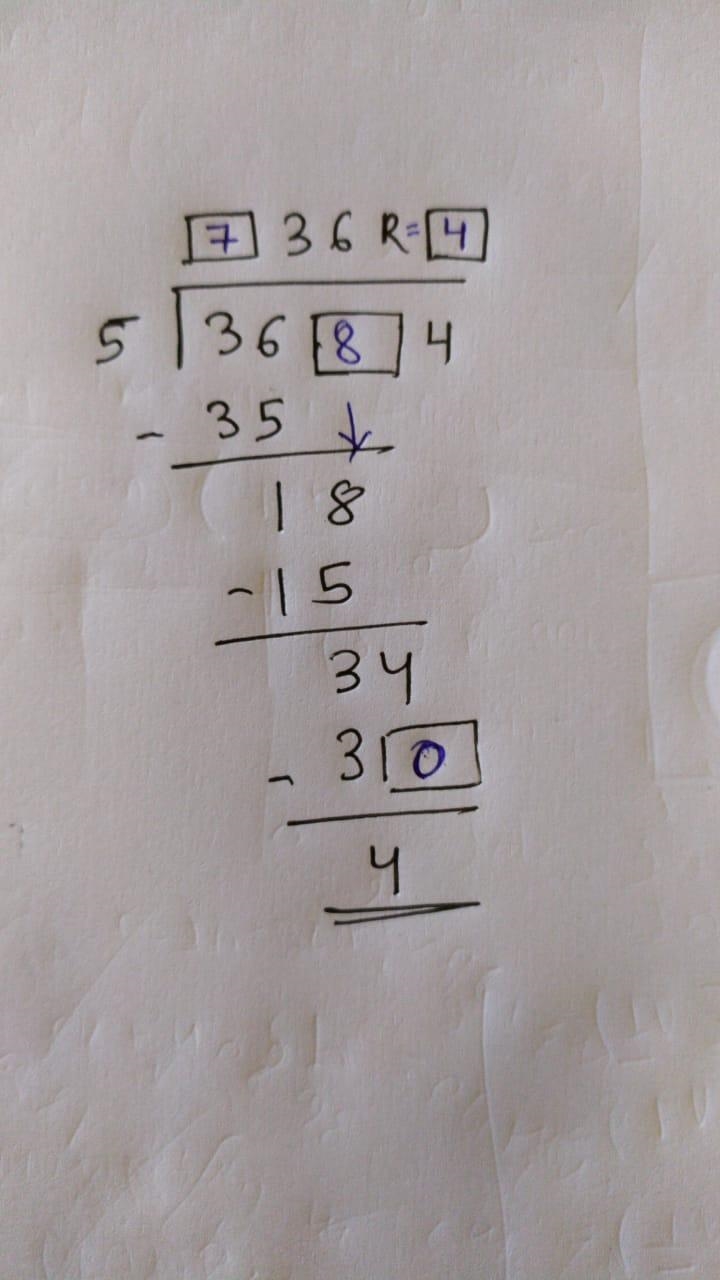 7 36 R=4
5 36 8 4
- 35 ↓
18
-15
34
- 30
4